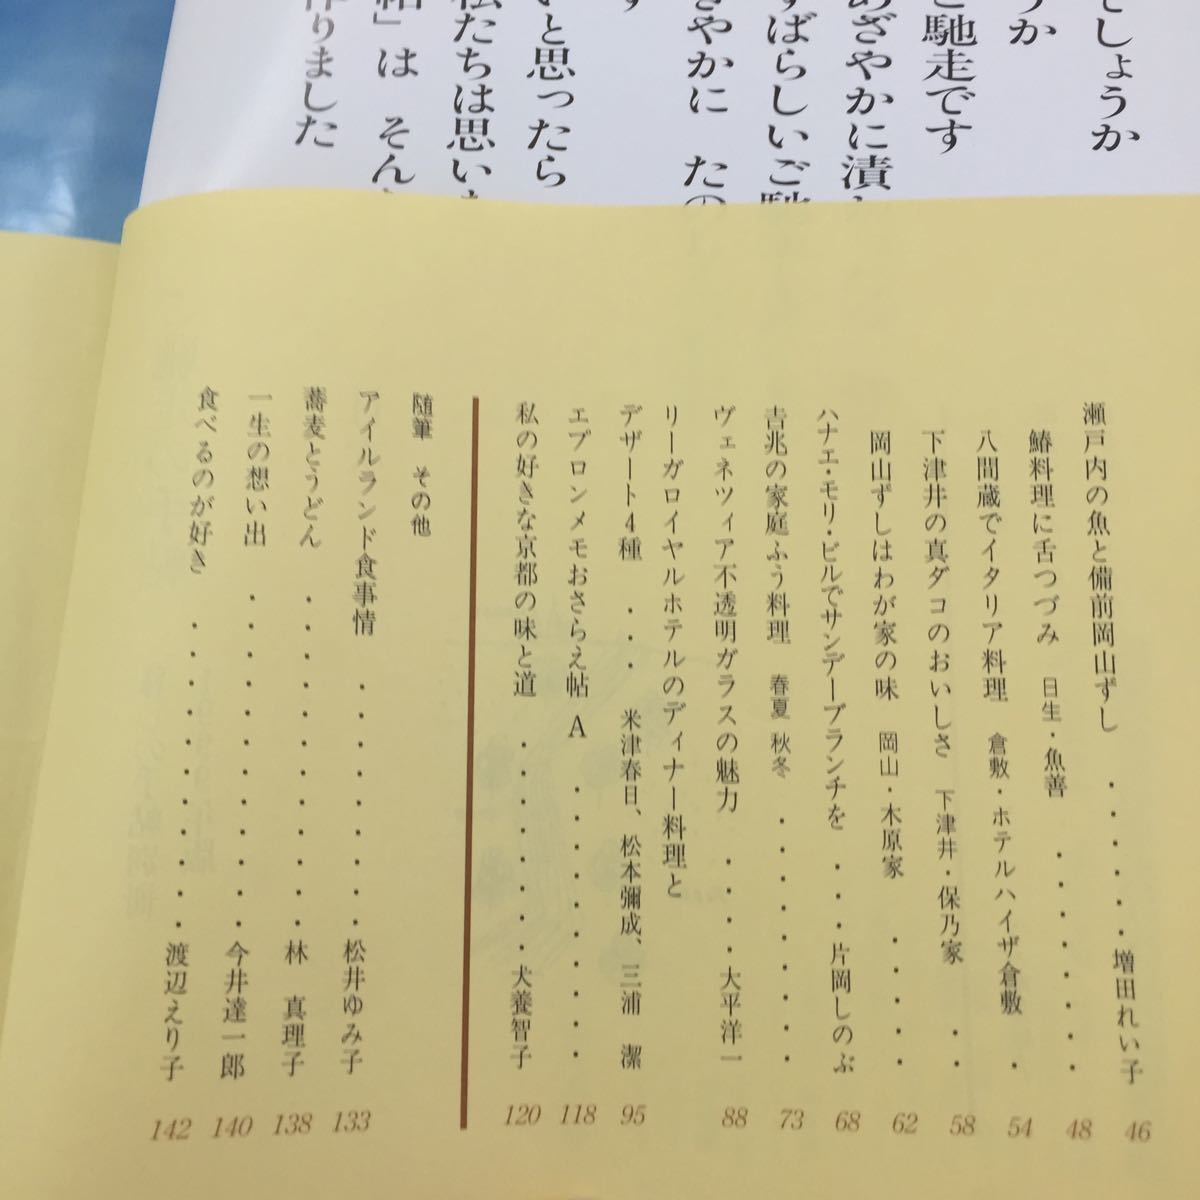 でしょうか
うか
ご馳走です
あざやかに漬
すばらしいご馳
きやかに たの
す
いと思ったら
私たちは思い
」は そん
作りました
瀬戸内の魚と備前岡山ずし ・・・・・・増田れい子 46
鰆料理に舌つづみ 日生・魚善 ・・・・・・ 48
八間蔵でイタリア料理 倉敷・ホテルハイザ倉敷 ・ 54
下津井の真ダコのおいしさ 下津井・保乃家 ・・ 58
岡山ずしはわが家の味 岡山・木原家 ・・・・ 62
ハナエ・モリ・ビルでサンデーブランチを ・・・片岡しのぶ 68
吉兆の家庭ふう料理 春夏 秋冬 ・・・・・・・ 73
ヴェネツィア不透明ガラスの魅力 ・・・・大平洋一 88
リーガロイヤルホテルのディナー料理と
デザート4種 ・・・ 米津春日、松本彌成、三浦 潔 95
エプロンメモおさらえ帖 A ・・・・・・・・ 118
私の好きな京都の味と道 ・・・・・・・犬養智子 120
随筆 その他
アイルランド食事情 ・・・・・・・・松井ゆみ子 133
蕎麦とうどん ・・・・・・・・・・林 真理子 138
一生の想い出 ・・・・・・・・・・今井達一郎 140
食べるのが好き ・・・・・・・・・・・渡辺えり子 142